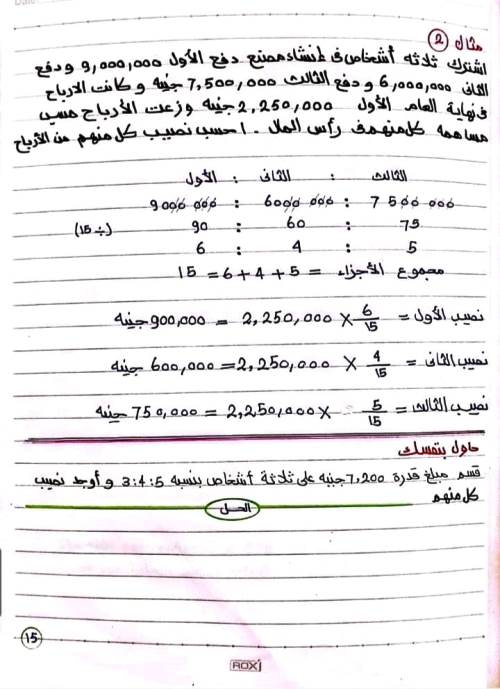 مثال (2)
اشترك ثلاثه أشخاص فى إنشاء مصنع دفع الأول 9,000,000 و دفع
الثانى 6,000,000 و دفع الثالث 7,500,000 جنيه و كانت الارباح
فى نهاية العام الأول 2,250,000 جنيه وزعت الأرباح حسب
مساهمة كل منهم فى رأس المال . احسب نصيب كل منهم من الأرباح
الأول : الثانى : الثالث
9000 000 : 6000 000 : 7500 000
90 : 60 : 75 (÷15)
6 : 4 : 5
مجموع الأجزاء = 5+4+6 = 15
نصيب الأول = 6/15 × 2,250,000 = 900,000 جنيه
نصيب الثانى = 4/15 × 2,250,000 = 600,000 جنيه
نصيب الثالث = 5/15 × 2,250,000 = 750,000 جنيه
حاول بنفسك
قسم مبلغ قدرة 7,200 جنيه على ثلاثة أشخاص بنسبه 3:4:5 و أوجد نصيب
كل منهم
الحل
15
ROXI